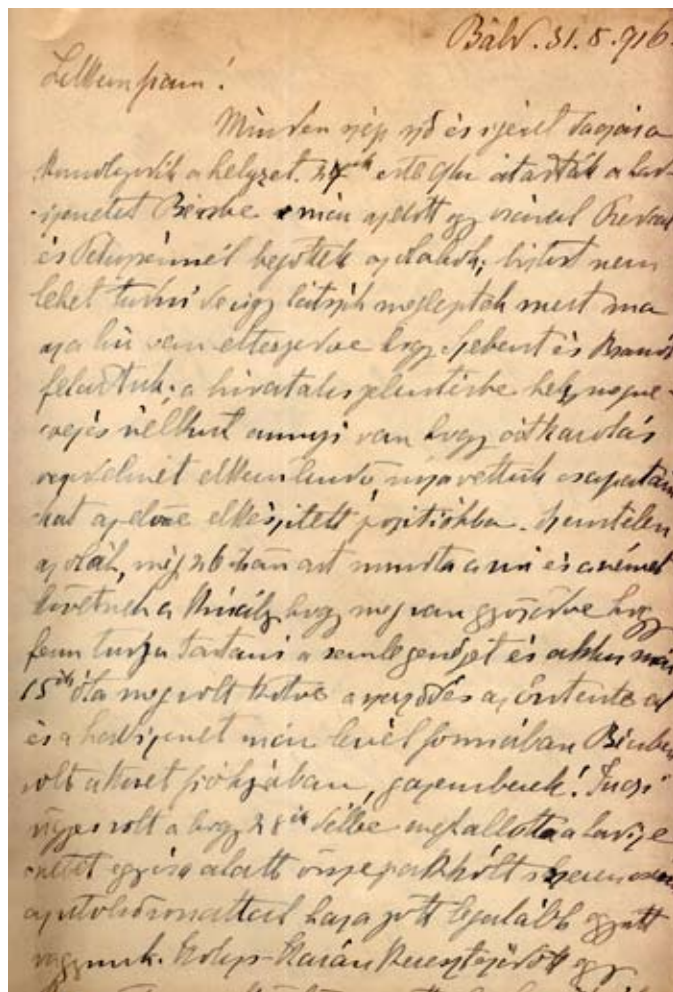 Bálv. 31. 8. 916.
Lelkem fiam!
Minden szép szó és igéret dacára
a helyzet. 27ik este 9kor átadták a had-
izenetet Bécsbe s már azelőtt egy órával Predeal
és Petrozsénnél bejöttek az oláhok; biztost nem
lehet tudni de úgy látszik megleptek mert ma
az a hír van elterjedve hogy Szebent és Brassót
feladtuk; a hivatalos jelentésbe hely megne-
vezés nélkül annyi van hogy átkarolás
veszedelmét elkerülendő vissza vettük csapatain-
kat az előre elkészített pozitiókba. Szemtelen
az oláh, még 26 azt mondta a mi és a német
követnek a Király, hogy meg van győződve hogy
fenn tudja tartani a semlegességet és akkor már
15ik óta meg volt kötve a szerződés az Entente al
és a hadizenet már levél formában Bécsben
volt a követ fiókjában, gazemberek!
ügyes volt a hogy 28ik délbe meghallotta a hadize-
netet egy óra alatt össze pakkolt szerencsésen
az utolsó vonattal haza jött legalább együtt
vagyunk. egy